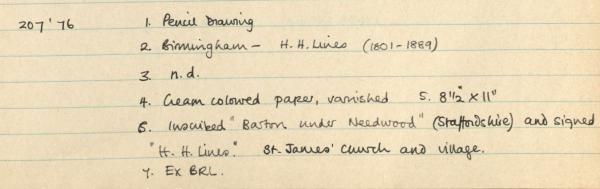 207'76 1. Pencil Drawing
2. Birmingham - H.H. Lines (1801-1889)
3. n.d.
4. Cream colored paper, varnished 5. 8 1/2" x 11"
6. Inscribed "Barton under Needwood" (Staffordshire) and signed
"H. H. Lines." St. James' Church and village.
7. Ex BRL.